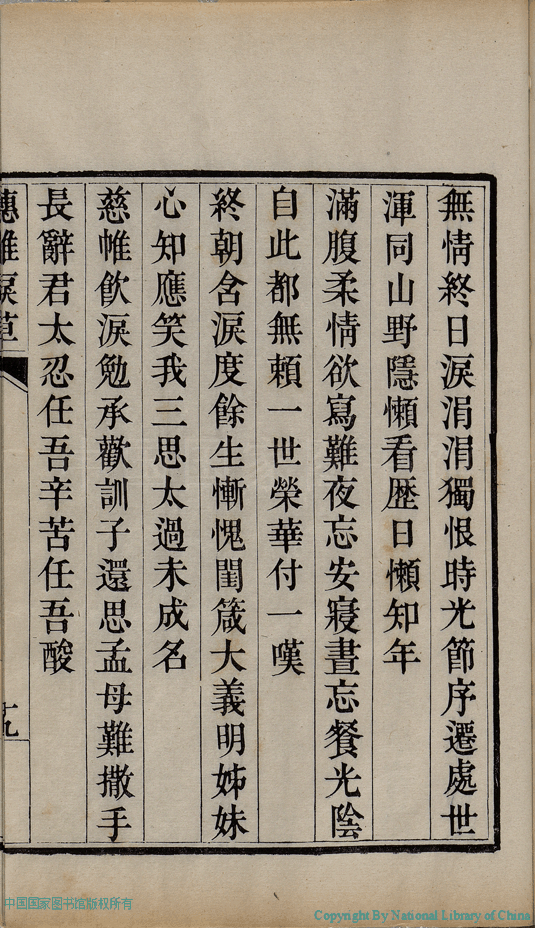 無情終日淚涓涓獨恨時光節序遷處世
渾同山野隱懶看歷日懶知年
滿腹柔情欲寫難夜忘安寢晝忘餐光陰
自此都無賴一世榮華付一嘆
終朝含淚度餘生慚愧閨箴大義明姊妹
心知應笑我三思太過未成名
慈帷飲淚勉承歡訓子還思孟母難撒手
長辭君太忍任吾辛苦任吾酸
穗帷淚草
十九
中国国家图书馆版权所有
Copyright By National Library of China